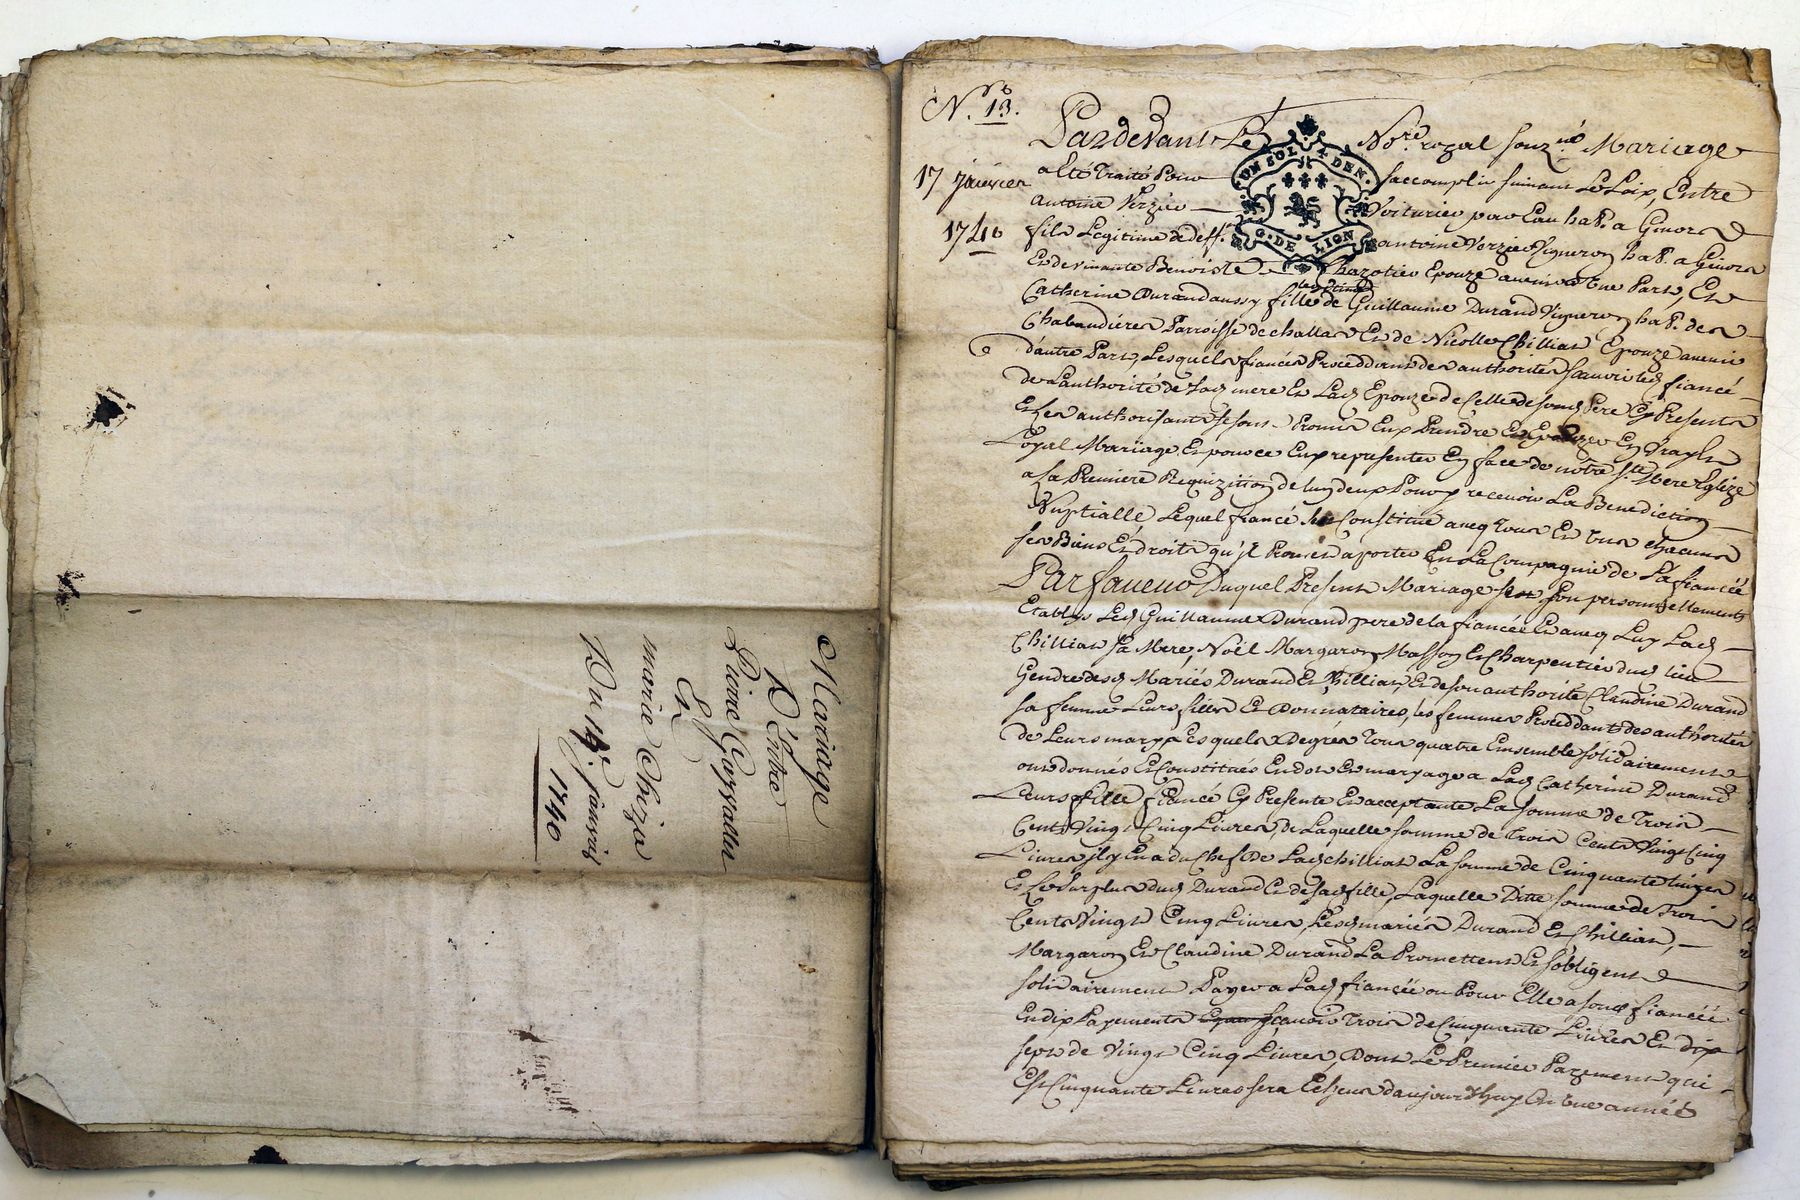 Mariage
D'Entre
Pierre
Et
marie
Du 14e. janvier
1740
No. 13.
17 janvier
1740
UN SOL 4 DEN.
G. DE LION
Pardevant Le Nore. royal souz.né Mariage
a Eté Traité Pour saccomplir suivant Les Loix, Entre
antoine Verzieu Voiturier par Eau hat. a Givors
fils Legitime de deff. antoine Verzieu Vigneron hat. a Givors
Et de vivante Benoiste Charotier Epouze avenir dUne Part, Et
Catherine Durand aussy fille legitime de Guillaume Durand Vigneron hat. des
Chabaudiéres Parroisse de challas Et de Nicolle Chillias Epouze avenir
d'autre Part, Lesquels fiancés Proceddants des authorités scavoir Led. fiancé
de L'authorité de sad. mere Et Lad. Epouze de Celle de sond. Pere Cy Presents
Et Les authorisants se sont Promis Eux Prendre Et Epouzer En Vray &
Loyal Mariage, Et pour ce Eux representer En face de notre Ste. Mere Eglize
a La Premiere Requizition de lun deux Pour y recevoir La Benediction
Nuptialle, Lequel fiancé se Constitue avec Tous Et Uns chacuns
ses Biens Et droits qu'il Promet aporter En La Compagnie de La fiancée
Par faveur Duquel Present Mariage se sont personnellement
Etablis Led. Guillaume Durand pere de la fiancée Et avec Luy Lad.
Chillias sa Mere, Noël Margaron Masson Et Charpentier dud. lieu
Gendre desd. Mariés Durand Et Chillias, Et de son authorité Claudine Durand
sa femme Leurs filles Et Donnataires, les femmes Proceddants des authorités
de Leurs marys Esquels Degrés Tous quatre Ensemble solidairement
ont donnés Et Constitués En dot Et maryage a Lad. Catherine Durand
Leurs fille fiancée Cy Presente Et acceptante La somme de Trois
Cents Vingt Cinq Livres, de Laquelle somme de Trois Cents Vingt Cinq
Livres jl y En a du Chef De Lad. Chillias La somme de Cinquante Livres
Et Le Surplus dud. Durand Et de sad. fille, Laquelle Ditte somme de Trois
Cents Vingt Cinq Livres, Lesd. mariés Durand Et Chillias,
Margaron Et Claudine Durand La Promettent Et s'obligent
solidairement Payer a Lad. fiancée ou Pour Elle a sond. fiancé
En dix Payements scavoir Trois de Cinquante Livres Et dix
sept de Vingt Cinq Livres, Dont Le Premier Payement qui
Est Cinquante Livres sera Echeus d'aujourd'huy En Une année